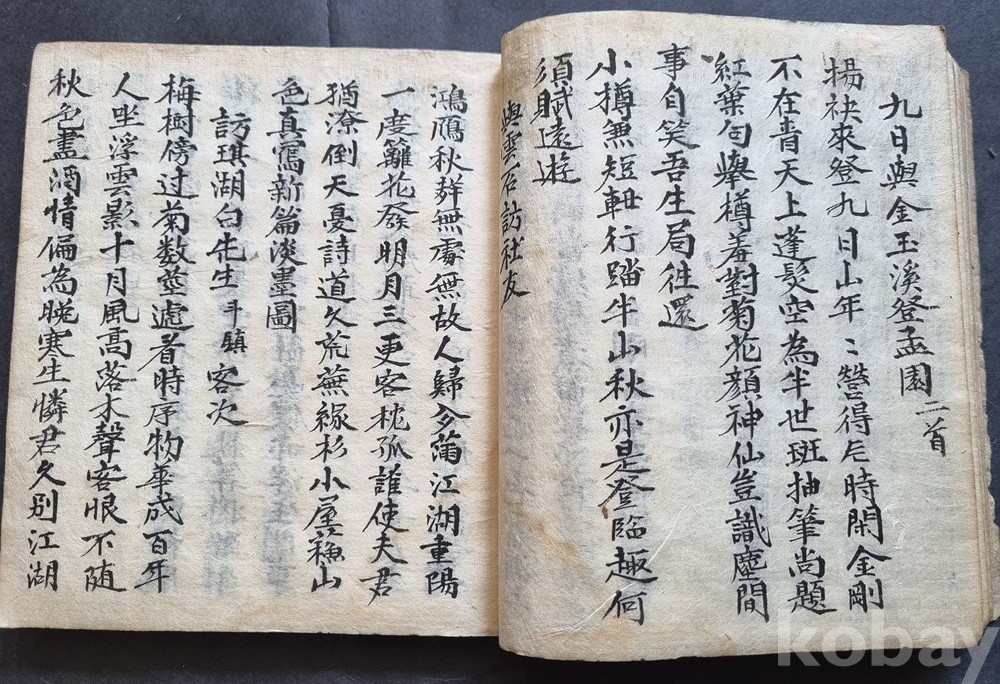 九日與金玉溪登孟園 二首
揚袂來登九日山年〻營得片時閑金剛
不在靑天上蓬髮空為半世斑抽筆尚題
紅葉句擧樽羞對菊花顔神仙豈識塵間
事自笑吾生局徃還
小樽無短輈行踏半山秋亦是登臨趣何
須賦遠遊
與雲石訪社友
鴻鴈秋群無處無故人歸夕滿江湖重陽
一度籬花發明月三更客枕孤誰使夫君
猶潦倒天憂詩道久荒蕪緑杉小屋稱山
色真寫新篇淡墨圖
訪琪湖白先生 斗鎭 客次
梅樹傍过菊数莖遽看時序物華成百年
人坐浮雲影十月風高落木聲客恨不随
秋色盡酒情偏為晚寒生憐君久别江湖
kobay